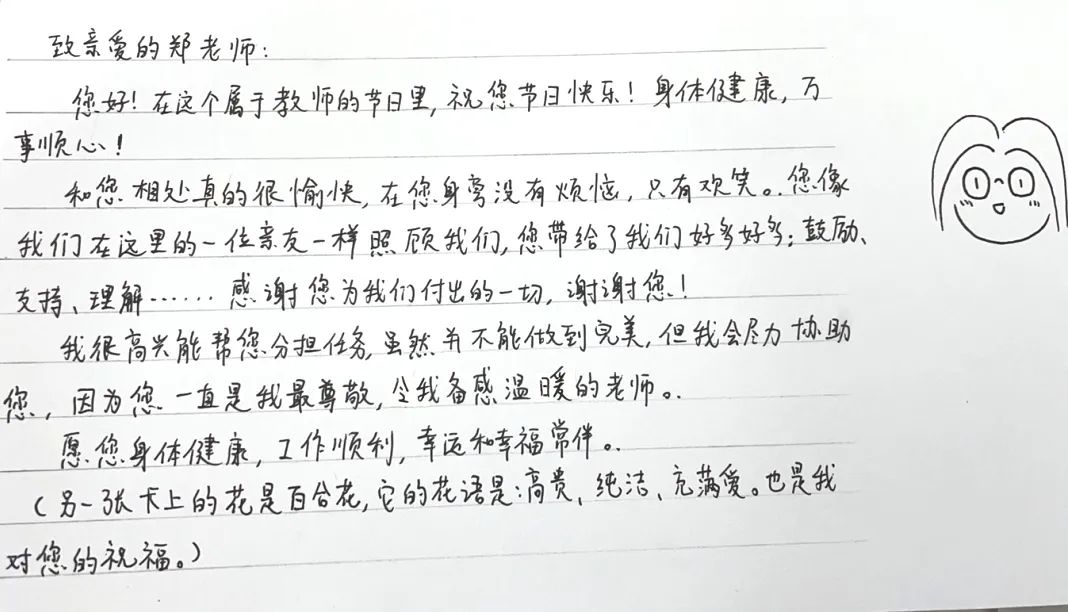 致亲爱的郑老师：
您好！在这个属于教师的节日里，祝您节日快乐！身体健康，万
事顺心！
和您相处真的很愉快，在您身旁没有烦恼，只有欢笑。您像
我们在这里的一位亲友一样照顾我们，您带给了我们好多好多：鼓励、
支持、理解……感谢您为我们付出的一切，谢谢您！
我很高兴能帮您分担任务，虽然并不能做到完美，但我会尽力协助
您，因为您一直是我最尊敬，令我备感温暖的老师。
愿您身体健康，工作顺利，幸运和幸福常伴。
（另一张卡上的花是百合花，它的花语是：高贵、纯洁、充满爱。也是我
对您的祝福。）